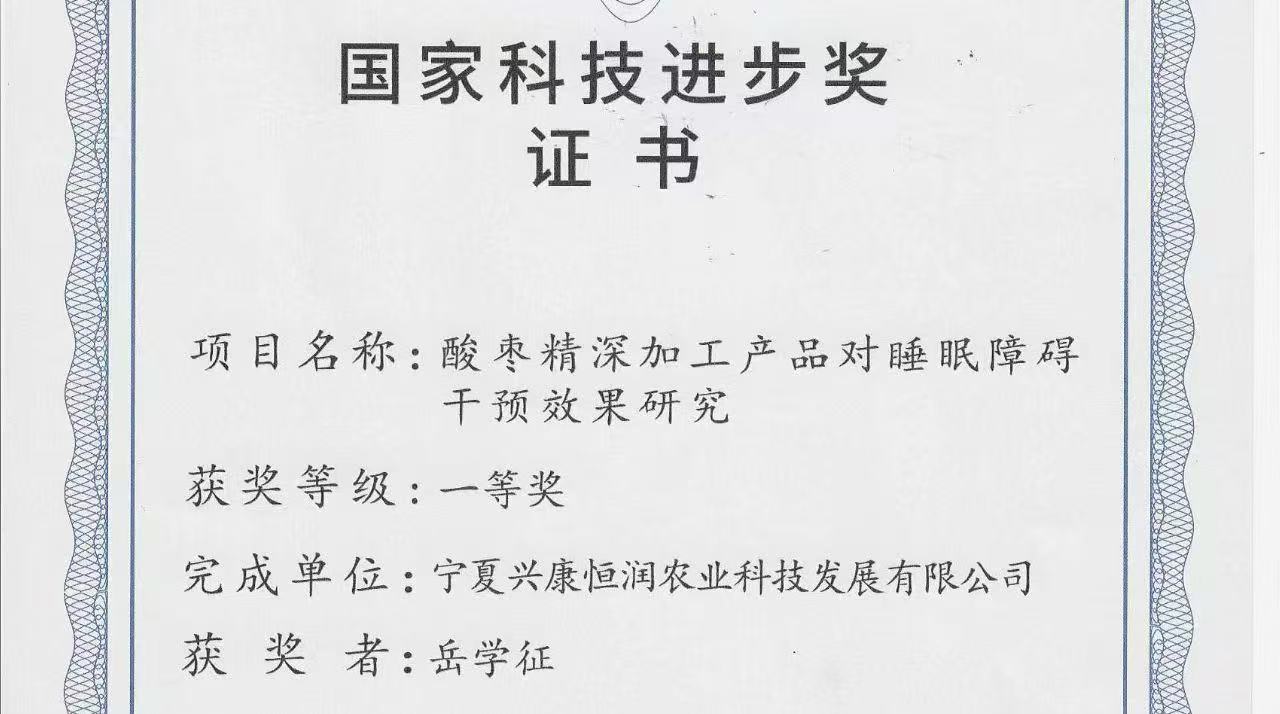 国家科技进步奖
证书
项目名称：酸枣精深加工产品对睡眠障碍
干预效果研究
获奖等级：一等奖
完成单位：宁夏兴康恒润农业科技发展有限公司
获奖者：岳学征